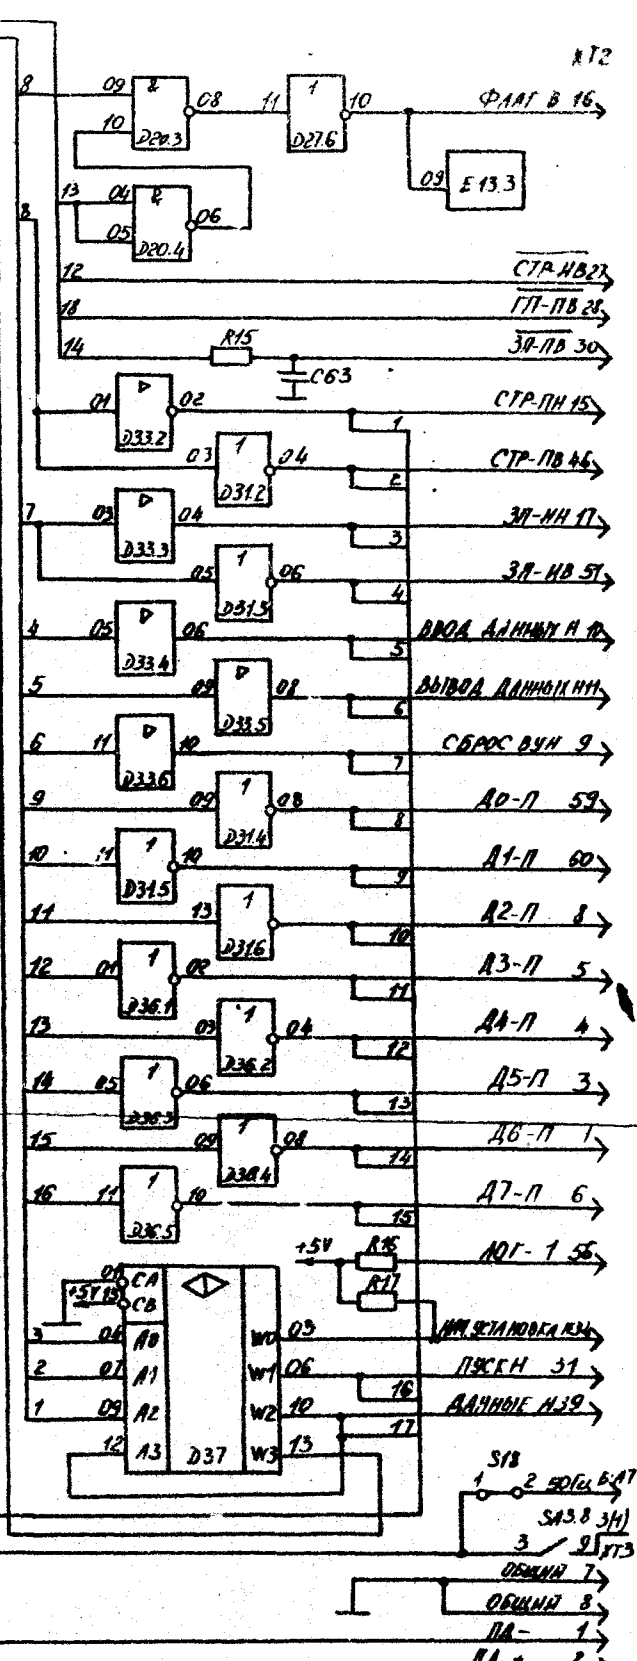 ХТ2
8 09 & 08 11 1 10 ФЛАГ В 16
10 D20.3 D27.6
09 E 13.3
13 04 & 06
8 05 D20.4
12 СТР-НВ 27
18 ГП-ПВ 28
14 R15 ЗП-ПВ 30
C63
01 D33.2 02 СТР-ПН 15
1
03 1 04 СТР-ПВ 46
D31.2 2
7 03 D33.3 04 ЗП-НН 17
3
05 1 06 ЗП-НВ 51
D31.3 4
4 05 D33.4 06 ВВОД ДАННЫХ Н 10
5
5 09 D33.5 08 ВЫВОД ДАННЫХ Н 11
6
6 11 D33.6 10 СБРОС ВУН 9
7
9 09 1 08 Д0-П 59
D31.4 8
10 11 1 10 Д1-П 60
D31.5 9
11 13 1 Д2-П 8
D31.6 10
12 01 1 02 Д3-П 5
D36.1 11
13 03 1 04 Д4-П 4
D36.2 12
14 05 1 06 Д5-П 3
D36.3 13
15 09 1 08 Д6-П 1
D36.4 14
16 11 1 10 Д7-П 6
D36.5 15
+5V R16 ЛОГ-1 56
R17
01 CA
+5V 15 CB
3 06 A0 W0 03 УСТАНОВКА Н34
2 07 A1 W1 06 ПУСК Н 31
16
1 09 A2 W2 10 ДАННЫЕ Н39
17
12 A3 D37 W3 13
S18
1 2 50Гц Б:А7
SA3.8 3(Н)
3 9 ХТ3
ОБЩИЙ 7
ОБЩИЙ 8
ПД- 1
ПД+ 2